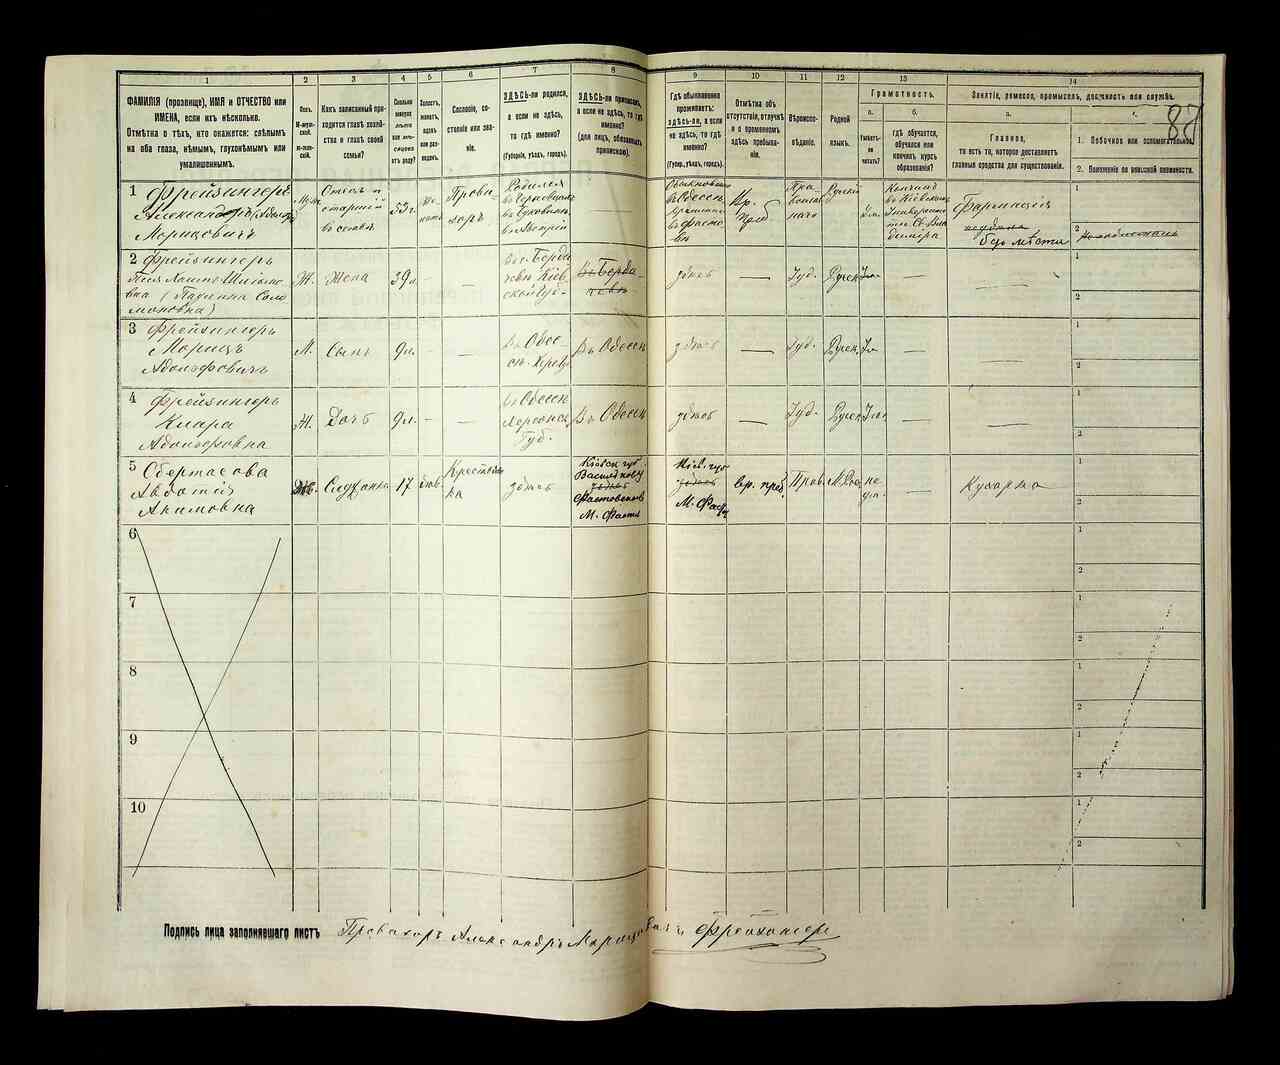 1 2 3 4 5 6 7 8 9 10 11 12 13 14
ФАМИЛІЯ (прозвище), ИМЯ и ОТЧЕСТВО или
ИМЕНА, если ихъ нѣсколько.
Отмѣтка о тѣхъ, кто окажется: слѣпымъ
на оба глаза, нѣмымъ, глухонѣмымъ или
умалишеннымъ.
Полъ.
М-муж-
ской.
Ж-жен-
скій.
Какъ записанный при-
ходится главѣ хозяй-
ства и главѣ своей
семьи?
Сколько
минуло
лѣтъ
или мѣ-
сяцевъ
отъ роду?
Холостъ,
женатъ,
вдовъ
или раз-
веденъ.
Сословіе, со-
стояніе или зва-
ніе.
ЗДѢСЬ-ли родился,
а если не здѣсь,
то гдѣ именно?
(Губернія, уѣздъ, городъ).
ЗДѢСЬ-ли приписанъ,
а если не здѣсь, то гдѣ
именно?
(для лицъ, обязанныхъ
припискою).
Гдѣ обыкновенно
проживаетъ:
здѣсь-ли, а если
не здѣсь, то гдѣ
именно?
(Губер., уѣздъ, городъ).
Отмѣтка объ
отсутствіи, отлучкѣ
и о временномъ
здѣсь пребыва-
ніи.
Вѣроиспо-
вѣданіе.
Родной
языкъ.
Грамотность.
а.
Умѣетъ-
ли
читать?
б.
гдѣ обучается,
обучался или
кончилъ курсъ
образованія?
Занятіе, ремесло, промыселъ, должность или служба.
а.
Главное,
то есть то, которое доставляетъ
главныя средства для существованія.
1. Побочное или вспомогательное.
2. Положеніе по воинской повинности.
87
1 Фрейзингеръ
Александръ (Адольфъ)
Морицовичъ
Отецъ и
старшій
въ семьѣ
53 г.
Прови-
зоръ
Родился
въ Черновцахъ
въ Буковинѣ
въ Австріи
въ Одессѣ
Вр.
преб
Пра
во
Кончилъ
въ Кіевскомъ
Университе
тѣ Св. Вла
димира
Фармація
безъ мѣста
1
2
2 Фрейзингеръ
вна (Паулина Соло
моновна)
Ж. Жена 39 л. —
въ г. Берди
чевѣ Кіев
ской Губ-
въ Берди
чевѣ
здѣсь — Іуд. —
1
2
3 Фрейзингеръ
Морицъ
Адольфовичъ
М. Сынъ 9 л. —
въ Одес-
сѣ
Въ Одессѣ здѣсь — Іуд. —
1
2
4 Фрейзингеръ
Клара
Адольфовна
Ж. Дочь 9 л. — —
въ Одессѣ
Херсонск.
Губ.
Въ Одессѣ здѣсь — Іуд. — —
1
2
5 Обертасова
Авдотія
Акимовна
Служанка 17
Крестьян
ка
здѣсь
Кіевск. губ.
Васильков. у
здѣсь
Фастовской
М. Фастъ
Кіев. губ
здѣсь
М. Фаст
вр. преб. Прав. — Кухарка
1
2
6
1
2
7
1
2
8
1
2
9
1
2
10
1
2
Подпись лица заполнявшаго листъ Провизоръ Александръ Морицовичъ Фрейзингеръ